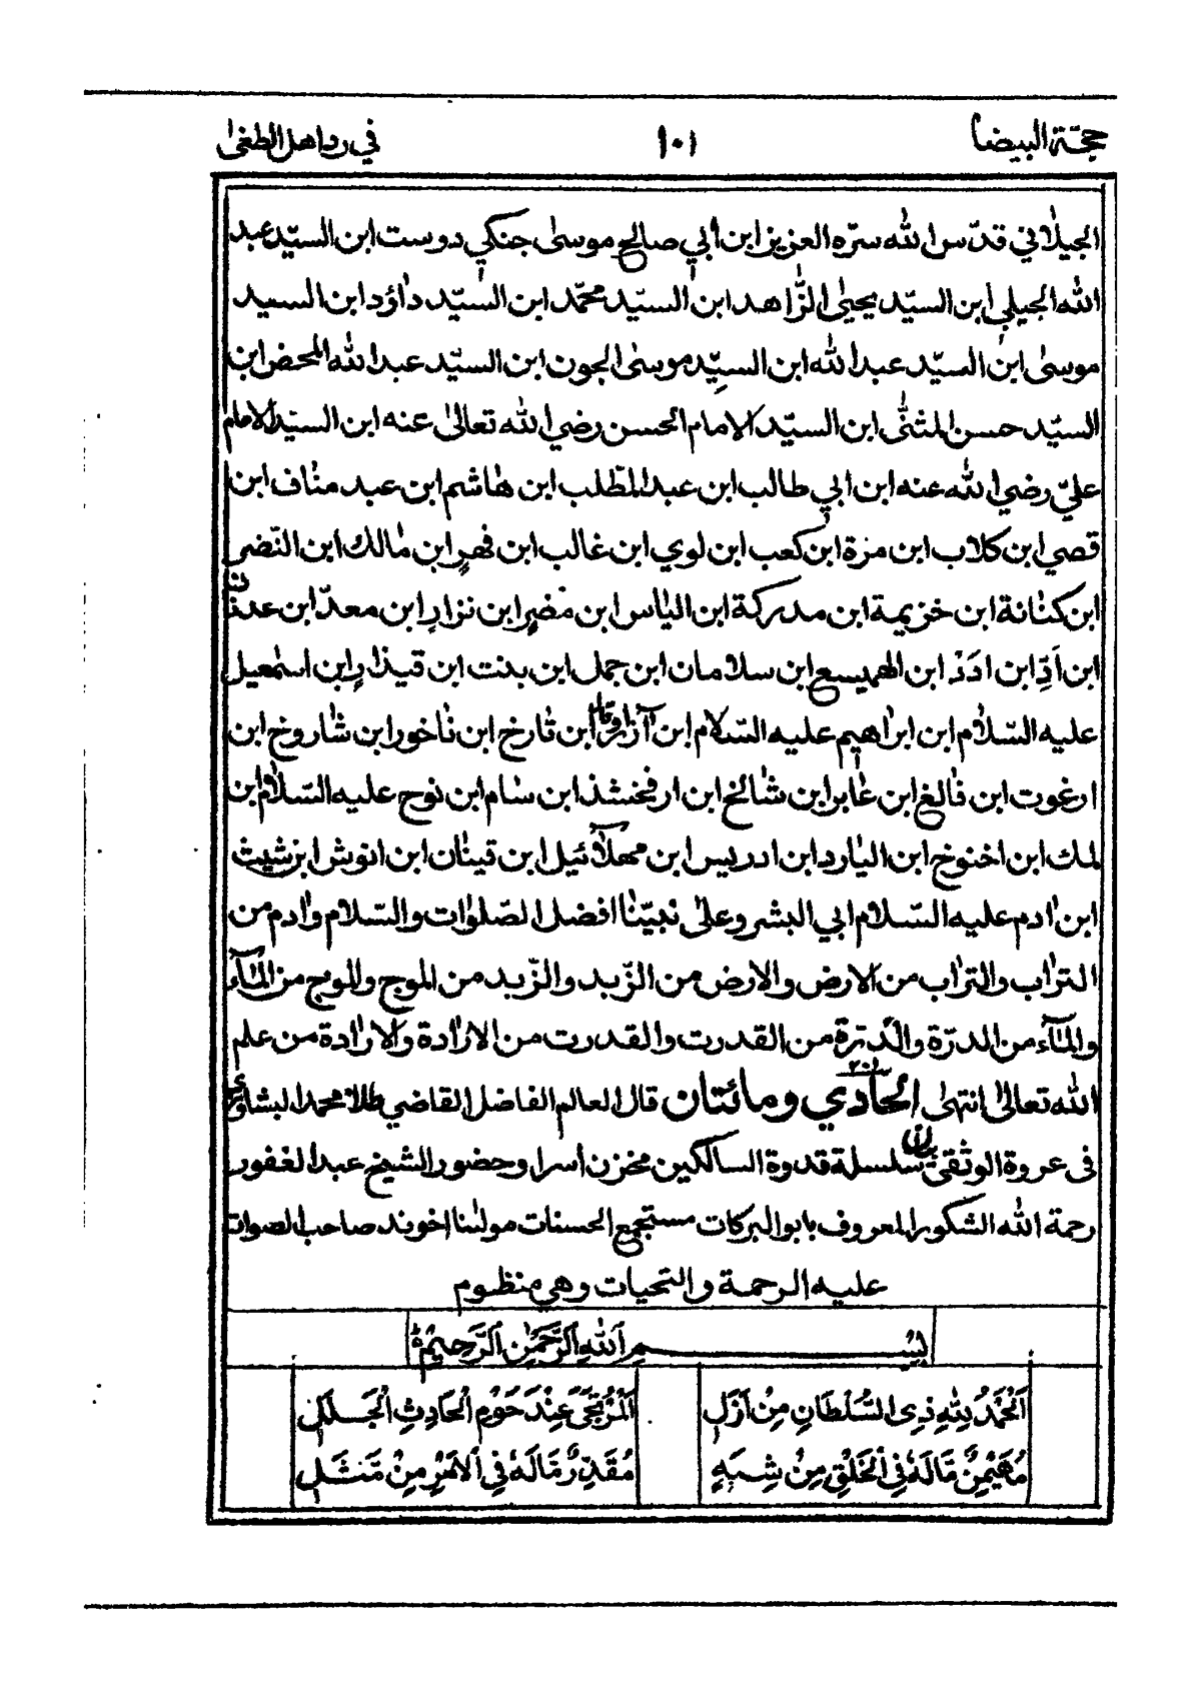 حجّة البيضا ١٠١ في رد اهل الطغى
الجيلاني قدّس الله سرّه العزيز ابن أبي صالح موسى جنكي دوست ابن السيّد عبد
الله الجيلي ابن السيّد يحيى الزّاهد ابن السيّد محمّد ابن السيّد داؤد ابن السيد
موسى ابن السيّد عبد الله ابن السيّد موسى الجون ابن السيّد عبد الله المحض ابن
السيّد حسن المثنّى ابن السيّد الامام الحسن رضي الله تعالى عنه ابن السيّد الامام
عليّ رضي الله عنه ابن ابي طالب ابن عبد المطّلب ابن هاشم ابن عبد مناف ابن
قصي ابن كلاب ابن مرة ابن كعب ابن لوي ابن غالب ابن فهر ابن مالك ابن النّضر
ابن كنانة ابن خزيمة ابن مدركة ابن الياس ابن مضر ابن نزار ابن معدّ ابن عدنان
ابن اَدِّ ابن ادَدْ ابن الهميسع ابن سلامان ابن جمل ابن بنت ابن قيذار ابن اسمعيل
عليه السّلام ابن ابراهيم عليه السّلام ابن آزر ابن تارخ ابن ناخور ابن شاروخ ابن
ارغوت ابن فالغ ابن غابر ابن شالخ ابن ارفخشذ ابن سام ابن نوح عليه السّلام ابن
لمك ابن اخنوخ ابن اليارد ابن ادريس ابن مهلآئيل ابن قينان ابن انوش ابن شيث
ابن ادم عليه السّلام ابي البشر وعلى نبيّنا افضل الصّلوات والسّلام وادم من
التراب والتراب من الارض والارض من الزّبد والزّبد من الموج والموج من المآء
والمآء من الدرّة والدّرّة من القدرت والقدرت من الارادة والارادة من علم
الله تعالى انتهى الحادي ومائتان ٢٠١ قال العالم الفاضل القاضي طلا محمد البشاوري
فى عروة الوثقى سلسلة قدوة السالكين مخزن اسرار وحضور الشيخ عبد الغفور
رحمة الله الشكور المعروف بابو البركات مستجمع الحسنات مولٰنا اخوند صاحب الصوات
عليه الرحمة والتحيات وهي منظوم
بِسْمِ اللهِ الرَّحْمٰنِ الرَّحِيْمِ
اَلْحَمْدُ لِلّٰهِ ذِى السُّلْطَانِ مِنْ اَزَلٍ اَلْمُرْتَجَى عِنْدَ حَوْمِ الْحَادِثِ الْجَلَلِ
مُهَيْمِنٌ مَالَهُ فِى الْخَلْقِ مِنْ شِبَهٍ مُقَدِّرٌ مَالَهُ فِي الْاَمْرِ مِنْ مَثَلٍ